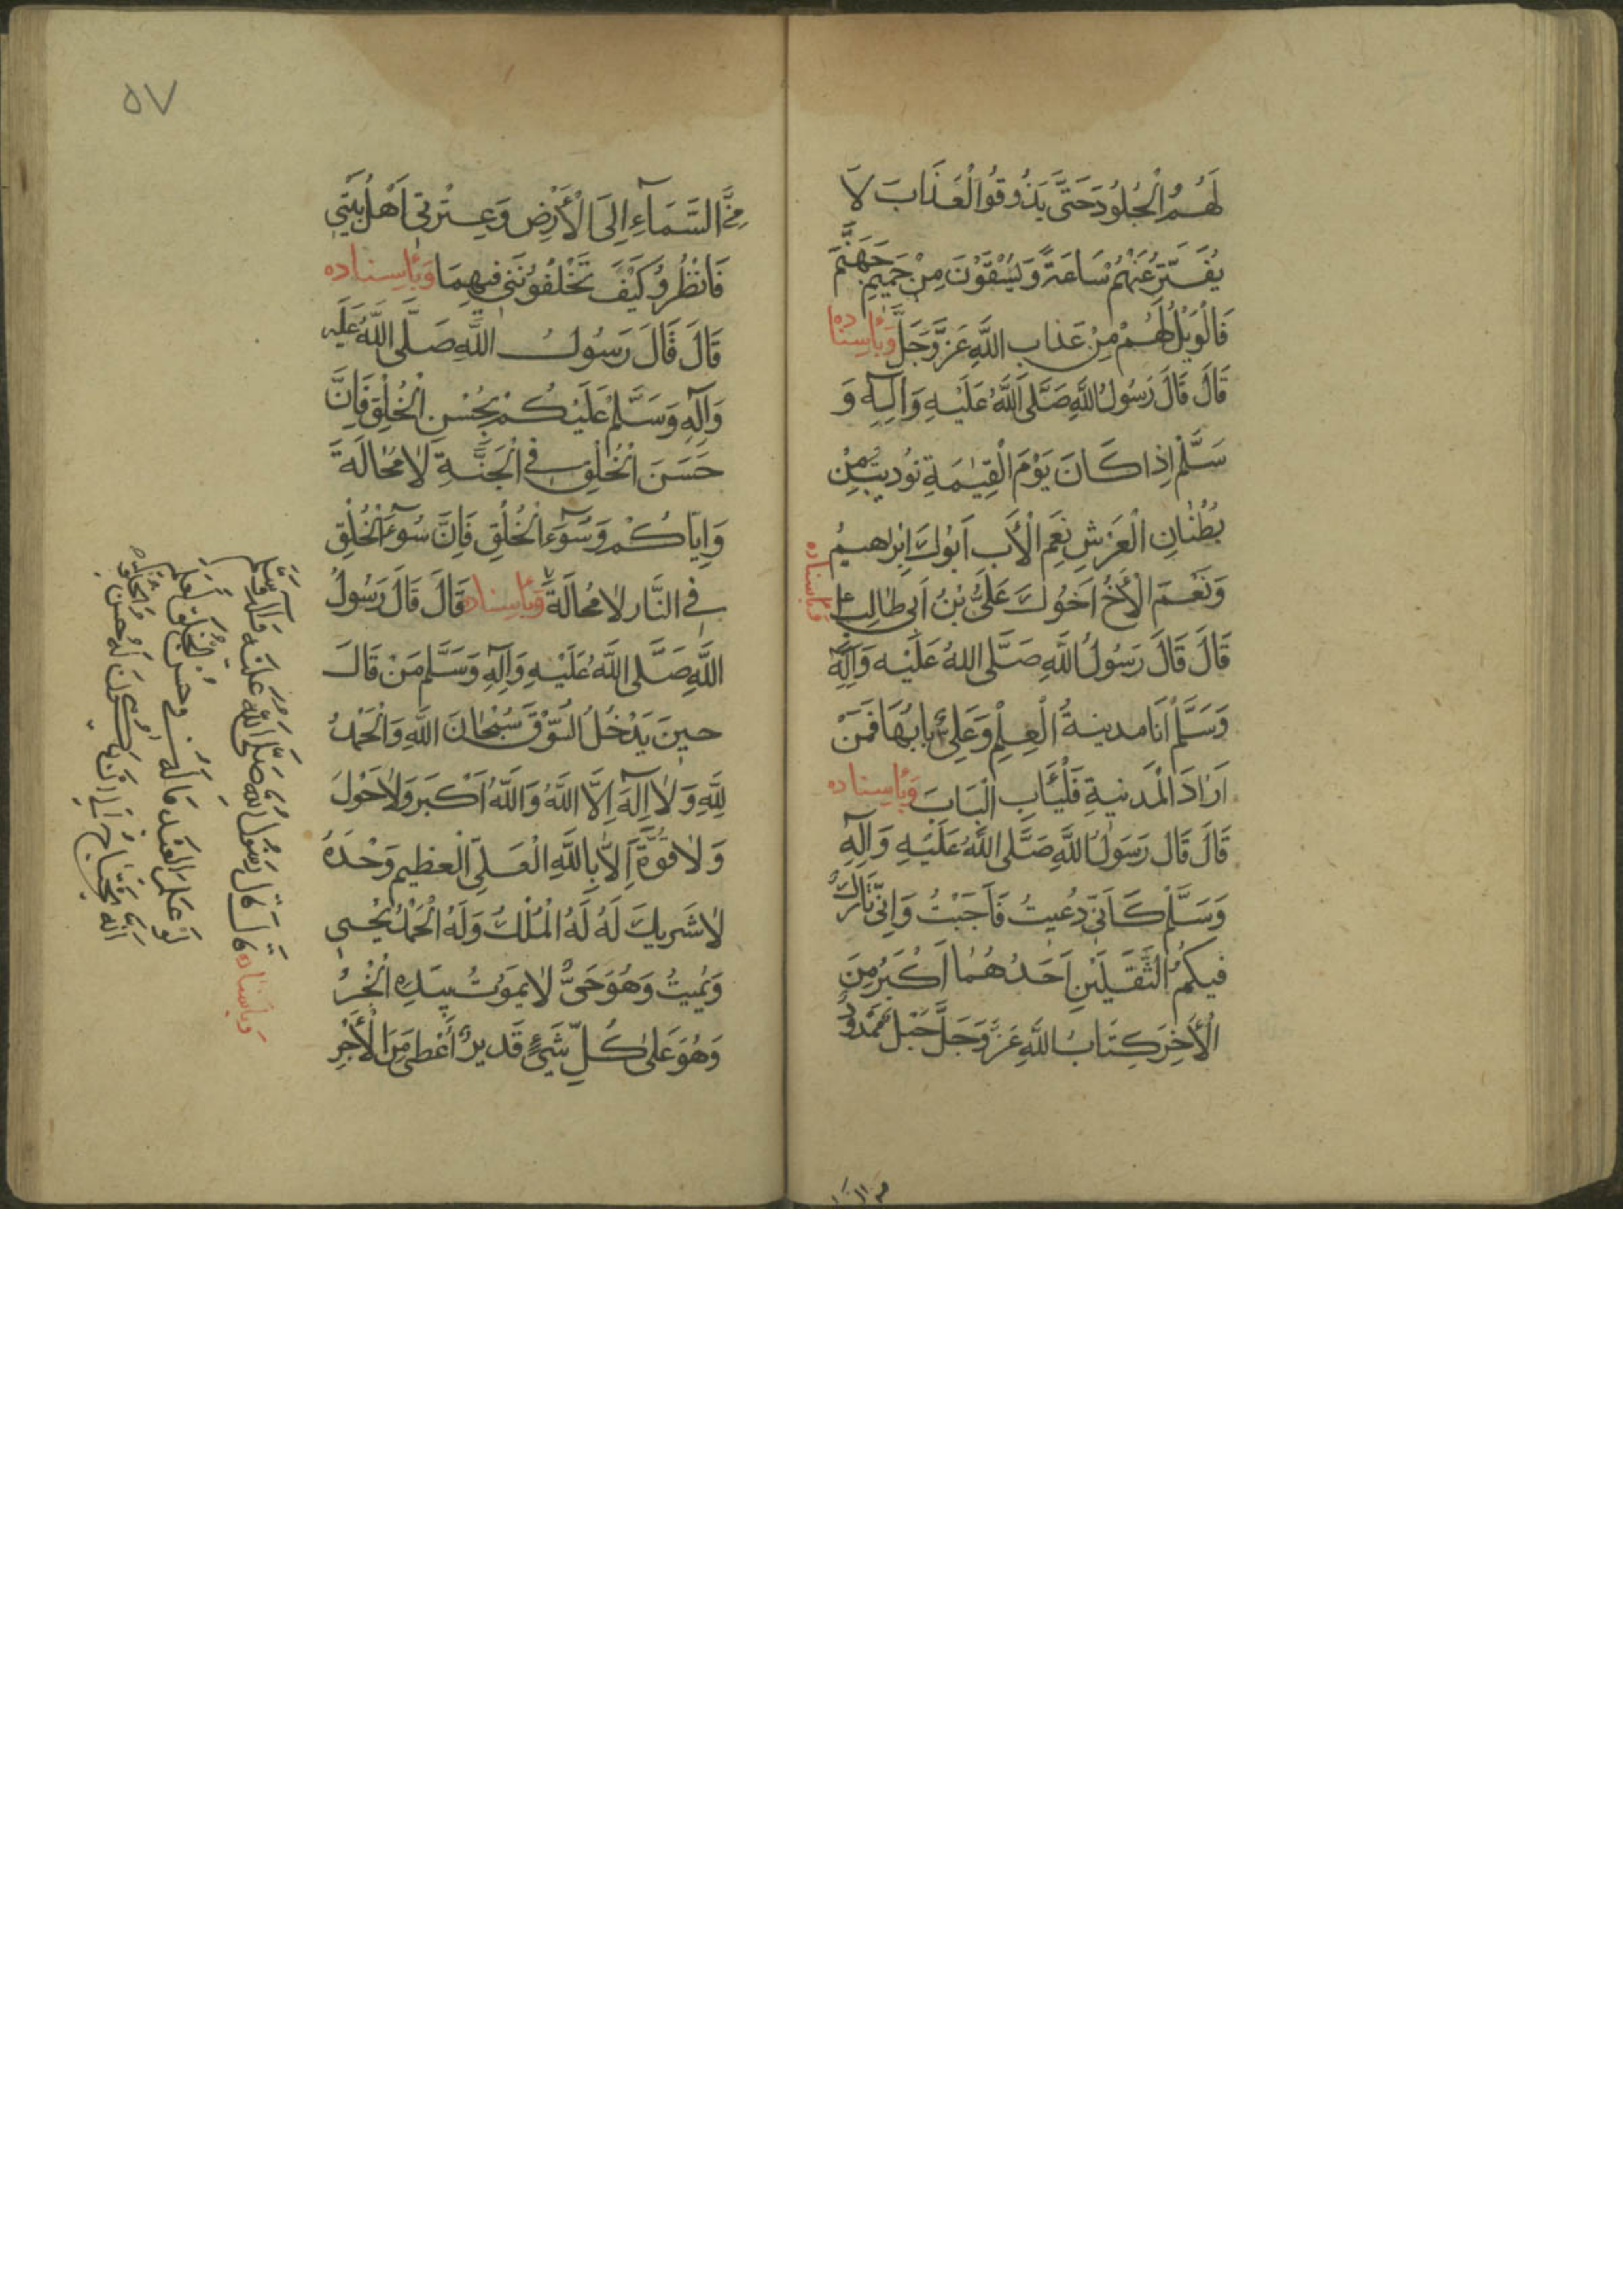 لَهُمُ الْجُلُودَ حَتَّى يَذُوقُوا الْعَذَابَ لَا
يُفَتَّرُ عَنْهُمْ سَاعَةً وَيُسْقَوْنَ مِنْ حَمِيمِ جَهَنَّمَ
فَالْوَيْلُ لَهُمْ مِنْ عَذَابِ اللَّهِ عَزَّ وَجَلَّ وَبِأِسْنَادِهِ
قَالَ قَالَ رَسُولُ اللَّهِ صَلَّى اللَّهُ عَلَيْهِ وَآلِهِ وَ
سَلَّمَ إِذَا كَانَ يَوْمَ الْقِيٰمَةِ نُودِيتُ مِنْ
بُطْنَانِ الْعَرْشِ نِعْمَ الْأَبُ أَبُوكَ إِبْرَاهِيمُ
وَنِعْمَ الْأَخُ أَخُوكَ عَلِيُّ بْنُ أَبِي طَالِبٍ ع وَبِأِسْنَادِهِ
قَالَ قَالَ رَسُولُ اللَّهِ صَلَّى اللهُ عَلَيْهِ وَآلِهِ
وَسَلَّمَ أَنَا مَدِينَةُ الْعِلْمِ وَعَلِيٌّ بَابُهَا فَمَنْ
أَرَادَ الْمَدِينَةِ فَلْيَأْتِ الْبَابَ وَبِأِسْنَادِهِ
قَالَ قَالَ رَسُولُ اللَّهِ صَلَّى اللَّهُ عَلَيْهِ وَآلِهِ
وَسَلَّمَ كَأَنِّي دُعِيتُ فَأَجَبْتُ وَإِنِّي تَارِكٌ
فِيكُمُ الثَّقَلَيْنِ أَحَدُهُمَا أَكْبَرُ مِنَ
الْأَخِرِ كِتَابُ اللَّهِ عَزَّ وَجَلَّ حَبْلٌ مَمْدُودٌ
٥٧
مِنَ السَّمَآءِ إِلَى الْأَرْضِ وَعِتْرَتِي أَهْلُ بَيْتِي
فَانْظُرُوا كَيْفَ تَخْلُفُونَنِي فِيهِمَا وَبِأِسْنَادِهِ
قَالَ قَالَ رَسُولُ اللَّهِ صَلَّى اللَّهُ عَلَيْهِ
وَآلِهِ وَسَلَّمَ عَلَيْكُمْ بِحُسْنِ الْخُلْقِ فَإِنَّ
حَسَنَ الْخُلْقِ فِي الْجَنَّةِ لَا مُحَالَةَ
وَإِيَّاكُمْ وَسُوءَ الْخُلْقِ فَإِنَّ سُوءَ الْخُلْقِ
فِي النَّارِ لَا مُحَالَةَ وَبِأِسْنَادِهِ قَالَ قَالَ رَسُولُ
اللَّهِ صَلَّى اللَّهُ عَلَيْهِ وَآلِهِ وَسَلَّمَ مَنْ قَالَ
حِينَ يَدْخُلُ السُّوقَ سُبْحَانَ اللَّهِ وَالْحَمْدُ
لِلَّهِ وَلَا إِلَهَ إِلَّا اللَّهُ وَاللَّهُ أَكْبَرُ وَلَا حَوْلَ
وَلَا قُوَّةَ إِلَّا بِاللَّهِ الْعَلِيِّ الْعَظِيمِ وَحْدَهُ
لَا شَرِيكَ لَهُ لَهُ الْمُلْكُ وَلَهُ الْحَمْدُ يُحْيِي
وَيُمِيتُ وَهُوَ حَيٌّ لَا يَمُوتُ بِيَدِهِ الْخَيْرُ
وَهُوَ عَلَى كُلِّ شَيْءٍ قَدِيرٌ أُعْطِيَ مِنَ الْأَجْرِ
وَبِاسْنَادِهِ قَالَ قَالَ رَسُولُ اللهِ صَلَّى اللهُ عَلَيْهِ وَآلِهِ وَسَلَّمَ
لَوْ عَلِمَ الْعَبْدُ مَا لَهُ فِي حُسْنِ الْخُلْقِ لَعَلِمَ
أَنَّهُ يَحْتَاجُ إِلَى أَنْ يَكُونَ لَهُ حُسْنُ الْخُلْقِ